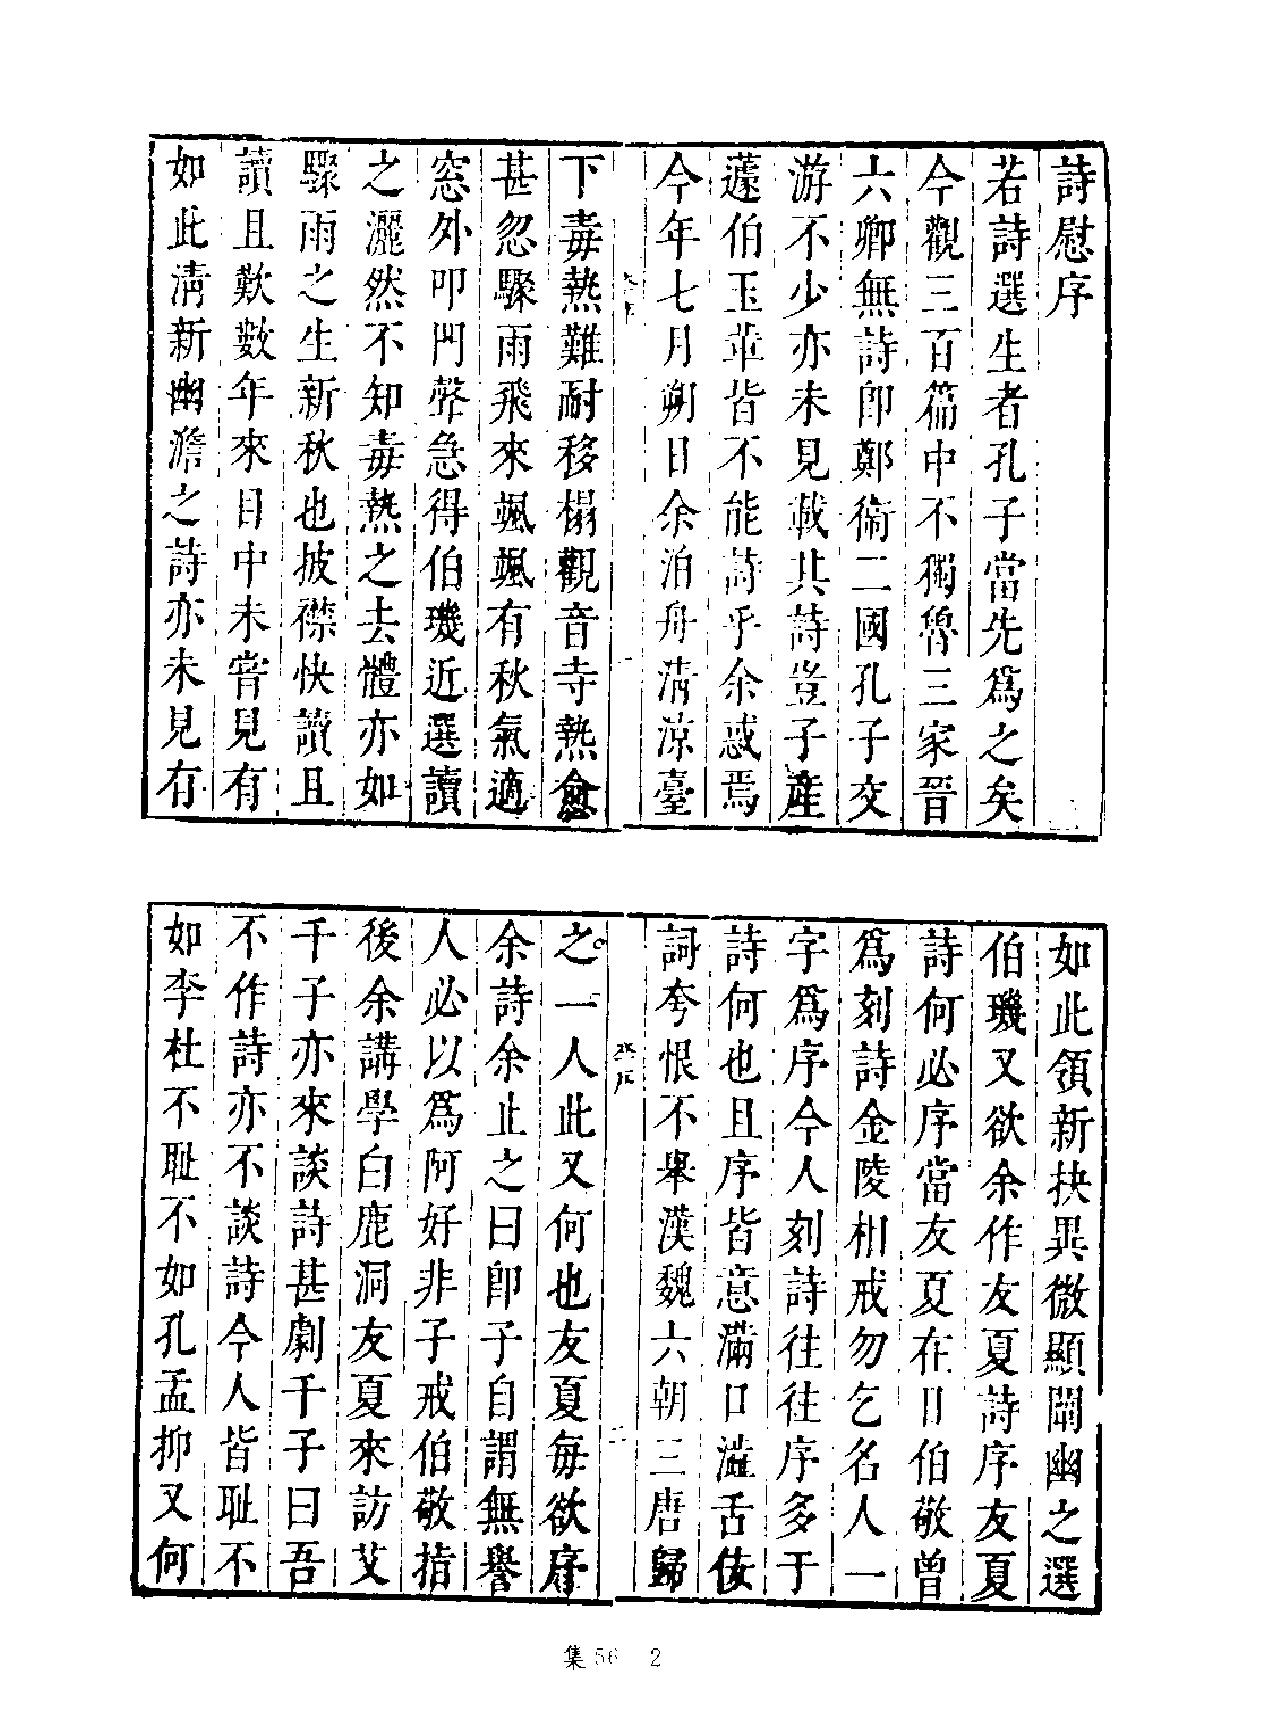 詩慰序
若詩選生者孔子當先爲之矣
今觀三百篇中不獨魯三家晉
六卿無詩卽鄭衞二國孔子交
游不少亦未見載其詩豈子產
蘧伯玉輩皆不能詩乎余惑焉
今年七月朔日余泊舟淸涼臺
下毒熱難耐移榻觀音寺熱愈
甚忽驟雨飛來颯颯有秋氣適
窓外叩門聲急得伯璣近選讀
之灑然不知毒熱之去體亦如
驟雨之生新秋也披襟快讀且
讀且歎數年來目中未嘗見有
如此淸新幽澹之詩亦未見有
如此領新抉異微顯闡幽之選
伯璣又欲余作友夏詩序友夏
詩何必序當友夏在日伯敬曾
爲刻詩金陵相戒勿乞名人一
字爲序今人刻詩往往序多于
詩何也且序皆意滿口溢舌佞
詞夸恨不舉漢魏六朝三唐歸
之一人此又何也友夏每欲序
余詩余止之曰卽子自謂無譽
人必以爲阿好非子戒伯敬指
後余講學白鹿洞友夏來訪艾
千子亦來談詩甚劇千子曰吾
不作詩亦不談詩今人皆耻不
如李杜不耻不如孔孟抑又何
集56 2